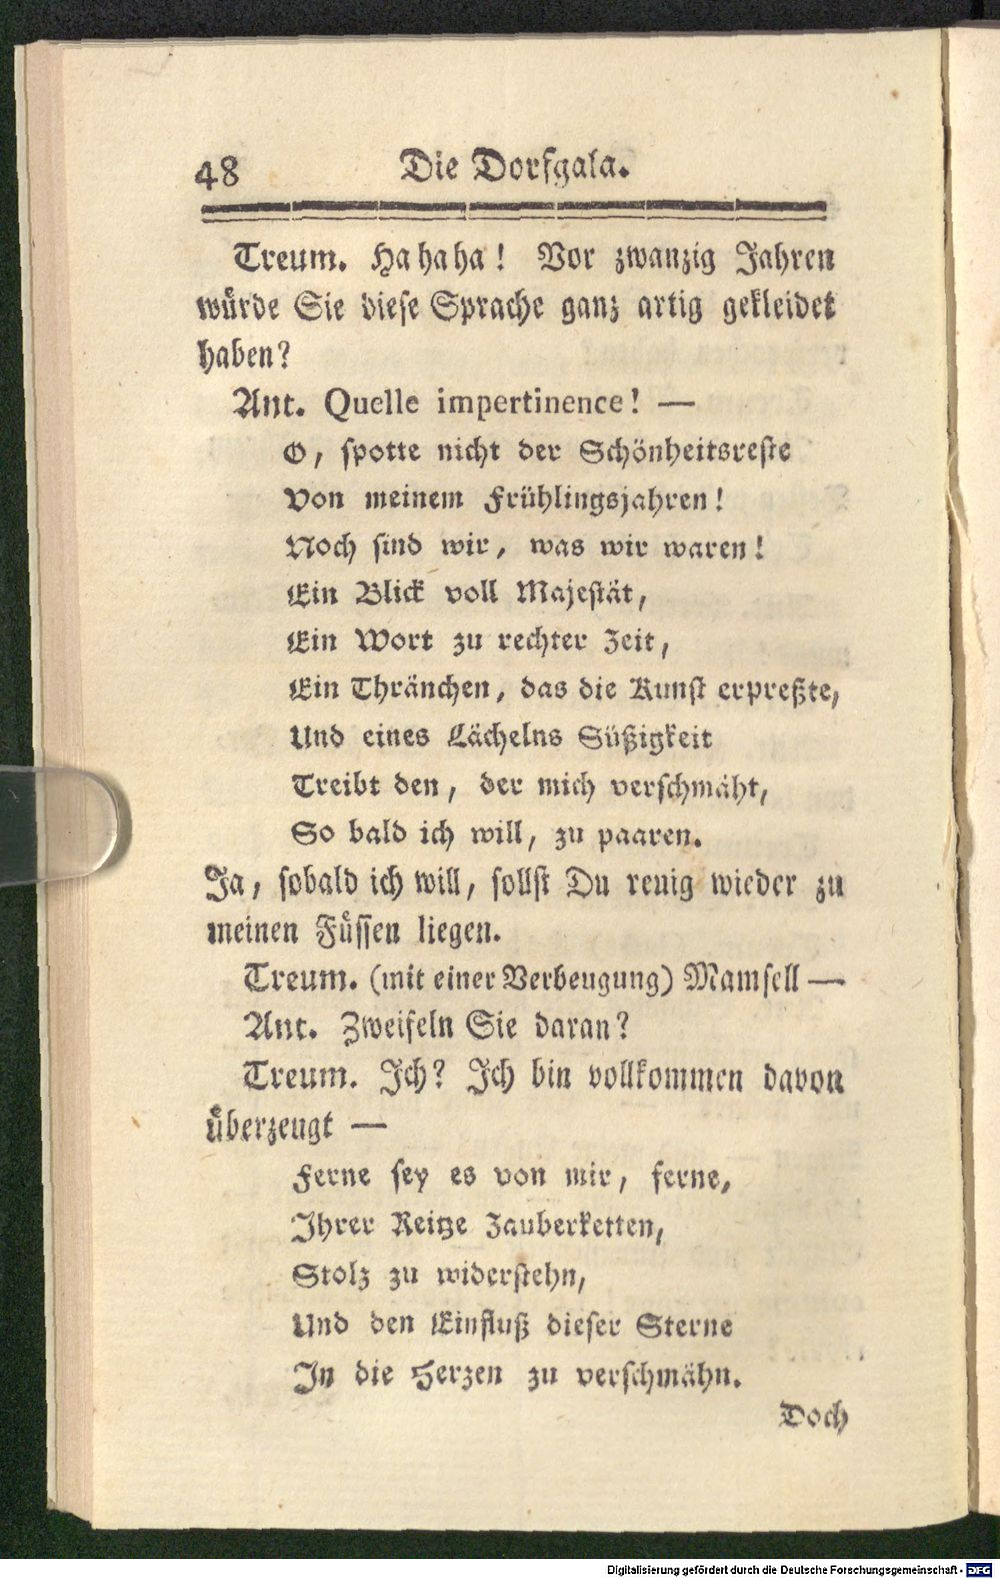 48 Die Dorfgala.
Treum. Ha ha ha! Vor zwanzig Jahren
würde Sie diese Sprache ganz artig gekleidet
haben?
Ant. Quelle impertinence! —
O, spotte nicht der Schönheitsreste
Von meinem Frühlingsjahren!
Noch sind wir, was wir waren!
Ein Blick voll Majestät,
Ein Wort zu rechter Zeit,
Ein Thränchen, das die Kunst erpreßte,
Und eines Lächelns Süßigkeit
Treibt den, der mich verschmäht,
So bald ich will, zu paaren.
Ja, sobald ich will, sollst Du reuig wieder zu
meinen Füssen liegen.
Treum. (mit einer Verbeugung) Mamsell —
Ant. Zweifeln Sie daran?
Treum. Ich? Ich bin vollkommen davon
überzeugt —
Ferne sey es von mir, ferne,
Ihrer Reitze Zauberketten,
Stolz zu widerstehn,
Und den Einfluß dieser Sterne
In die Herzen zu verschmähn.
Doch
Digitalisierung gefördert durch die Deutsche Forschungsgemeinschaft - DFG